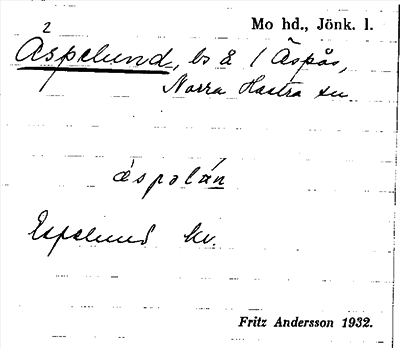 Mo hd., Jönk. l.
Äspelund, bs å / Äspås,
Norra Hestra sn
ɛspəlún
Espelund kv.
Fritz Andersson 1932.